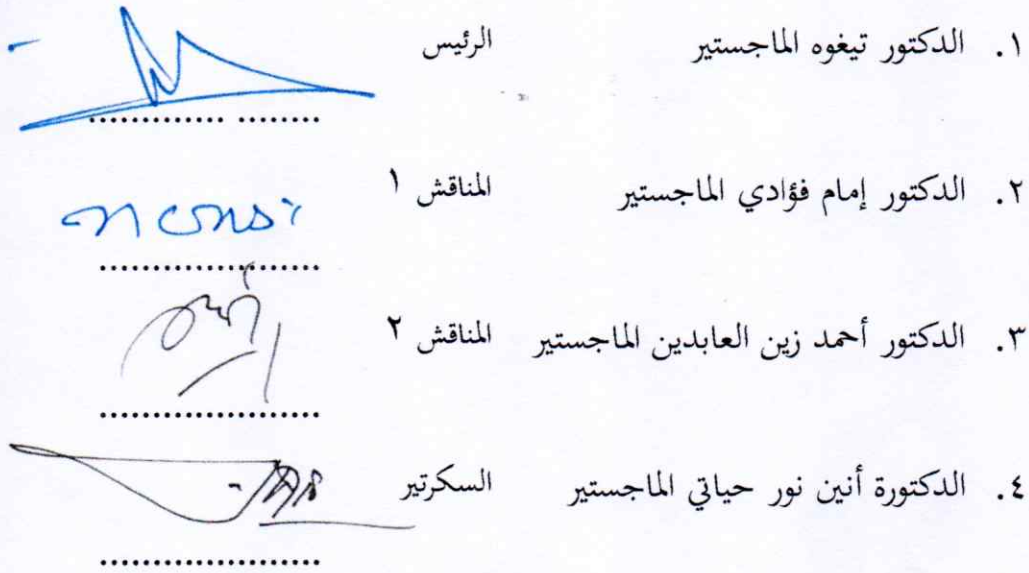 ١. الدكتور تيغوه الماجستير الرئيس
.............. .........
٢. الدكتور إمام فؤادي الماجستير المناقش ١
......................
٣. الدكتور أحمد زين العابدين الماجستير المناقش ٢
......................
٤. الدكتورة أنين نور حياتي الماجستير السكرتير
......................